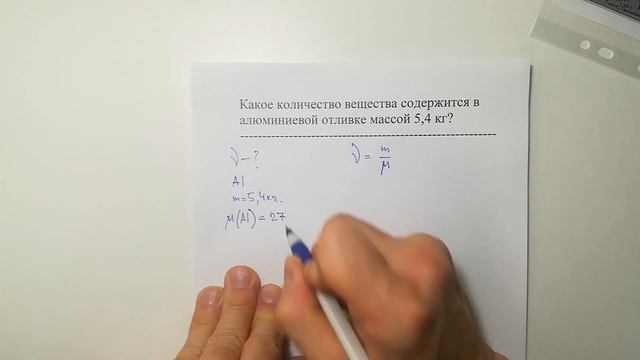 Какое количество вещества содержится в
алюминиевой отливке массой 5,4 кг?
ν – ?
Al
m = 5,4 кг.
μ(Al) = 27
ν = m/μ